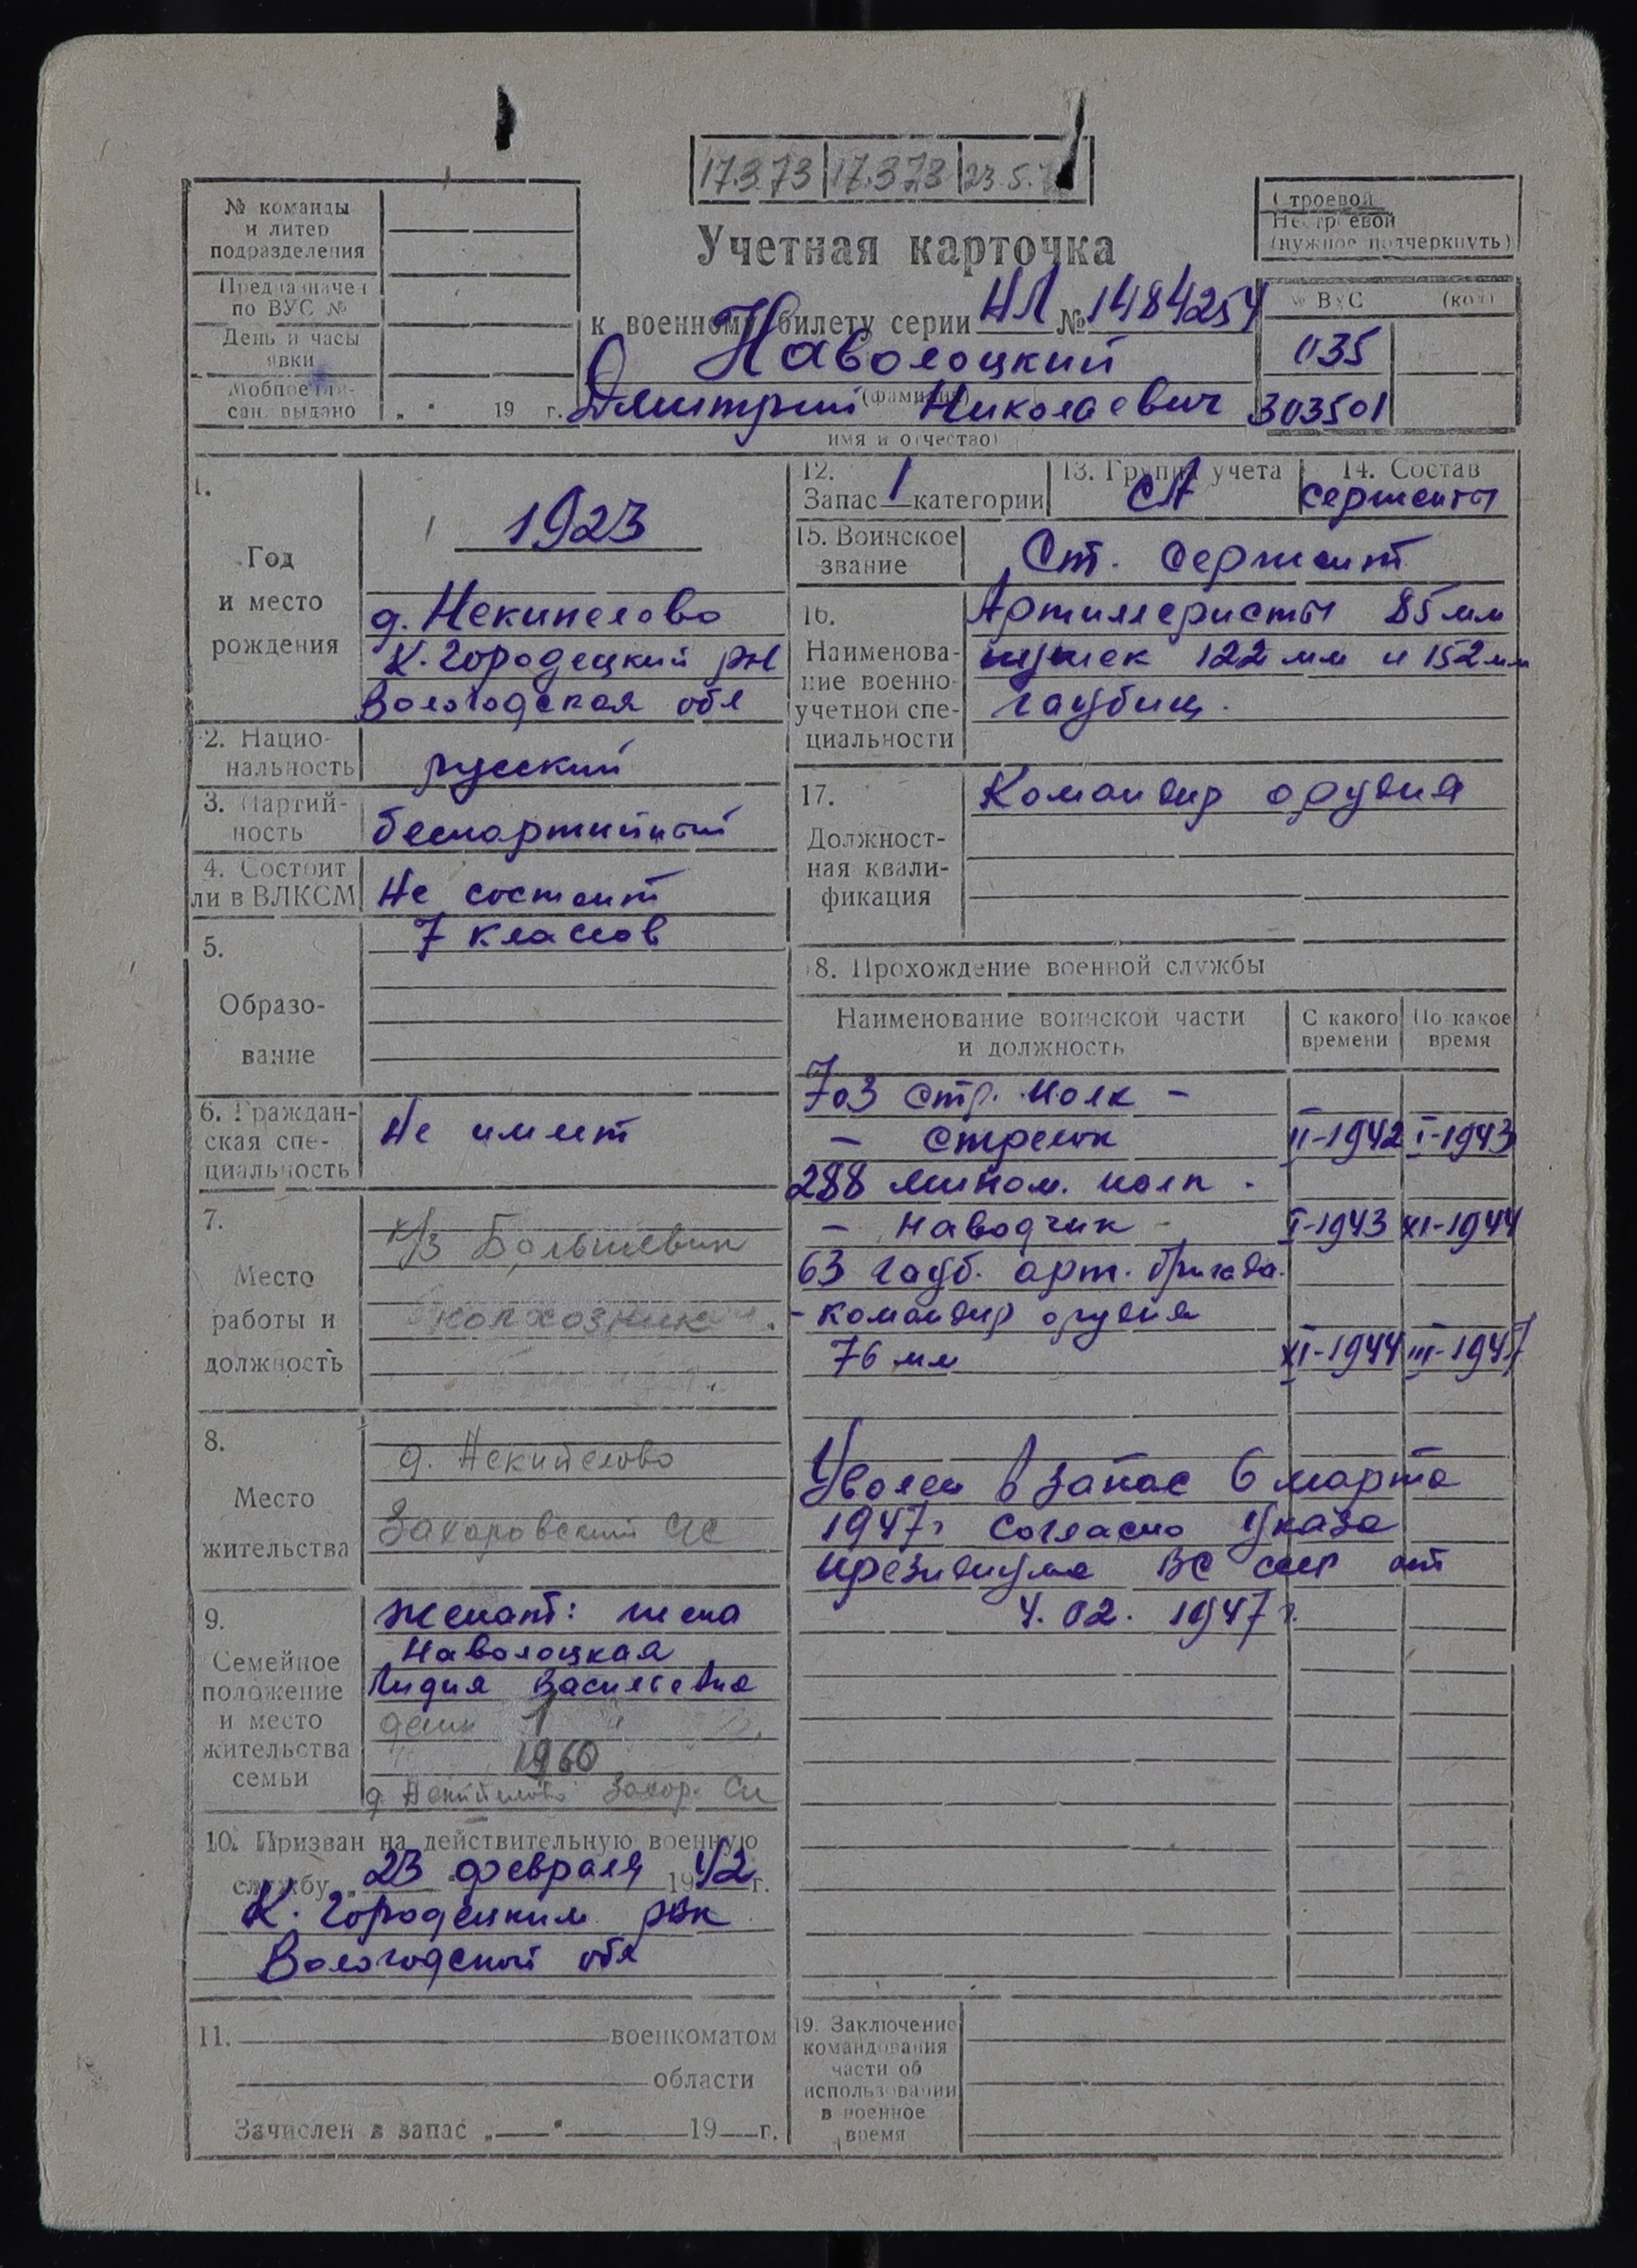 17.3.73 17.3.73 23.5.
№ команды
и литер
подразделения
Предназначен
по ВУС №
День и часы
явки
Мобпредпи-
сан. выдано „ “ 19 г.
Строевой
Нестроевой
(нужное подчеркнуть)
Учетная карточка
к военному билету серии НЛ № 1484254
Наволоцкий
(фамилия)
Дмитрий Николаевич
имя и отчество)
№ ВУС (код)
035
303501
1.
Год
и место
рождения
1923
д. Некипелово
К. Городецкий р-н
Вологодская обл
2. Нацио-
нальность
русский
3. Партий-
ность
беспартийный
4. Состоит
ли в ВЛКСМ
Не состоит
5.
Образо-
вание
7 классов
6. Граждан-
ская спе-
циальность
Не имеет
7.
Место
работы и
должность
к/з Большевик
колхозник
8.
Место
жительства
д. Некипелово
Захаровский с/с
9.
Семейное
положение
и место
жительства
семьи
женат: жена
Наволоцкая
Лидия Васильевна
дети 1
1960
д. Некипелово Захар. С/с
10. Призван на действительную военную
службу „ 23 февраля 1942 г.
К. Городецким рвк
Вологодской обл
11. военкоматом
области
Зачислен в запас „ “ 19 г.
12.
Запас 1 категории
13. Группа учета
СА
14. Состав
сержанты
15. Воинское
звание
Ст. сержант
16.
Наименова-
ние военно-
учетной спе-
циальности
Артиллеристы 85 мм
пушек 122 мм и 152 мм
гаубиц.
17.
Должност-
ная квали-
фикация
Командир орудия
18. Прохождение военной службы
Наименование воинской части
и должность
С какого
времени
По какое
время
703 стр. полк -
- стрелок II-1942 I-1943
288 мином. полк.
- наводчик - I-1943 XI-1944
63 гауб. арт. бригада.
- командир орудия
76 мм XI-1944 III-1947
Уволен в запас 6 марта
1947г согласно Указа
президиума ВС СССР от
4. 02. 1947 г.
19. Заключение
командования
части об
использовании
в военное
время